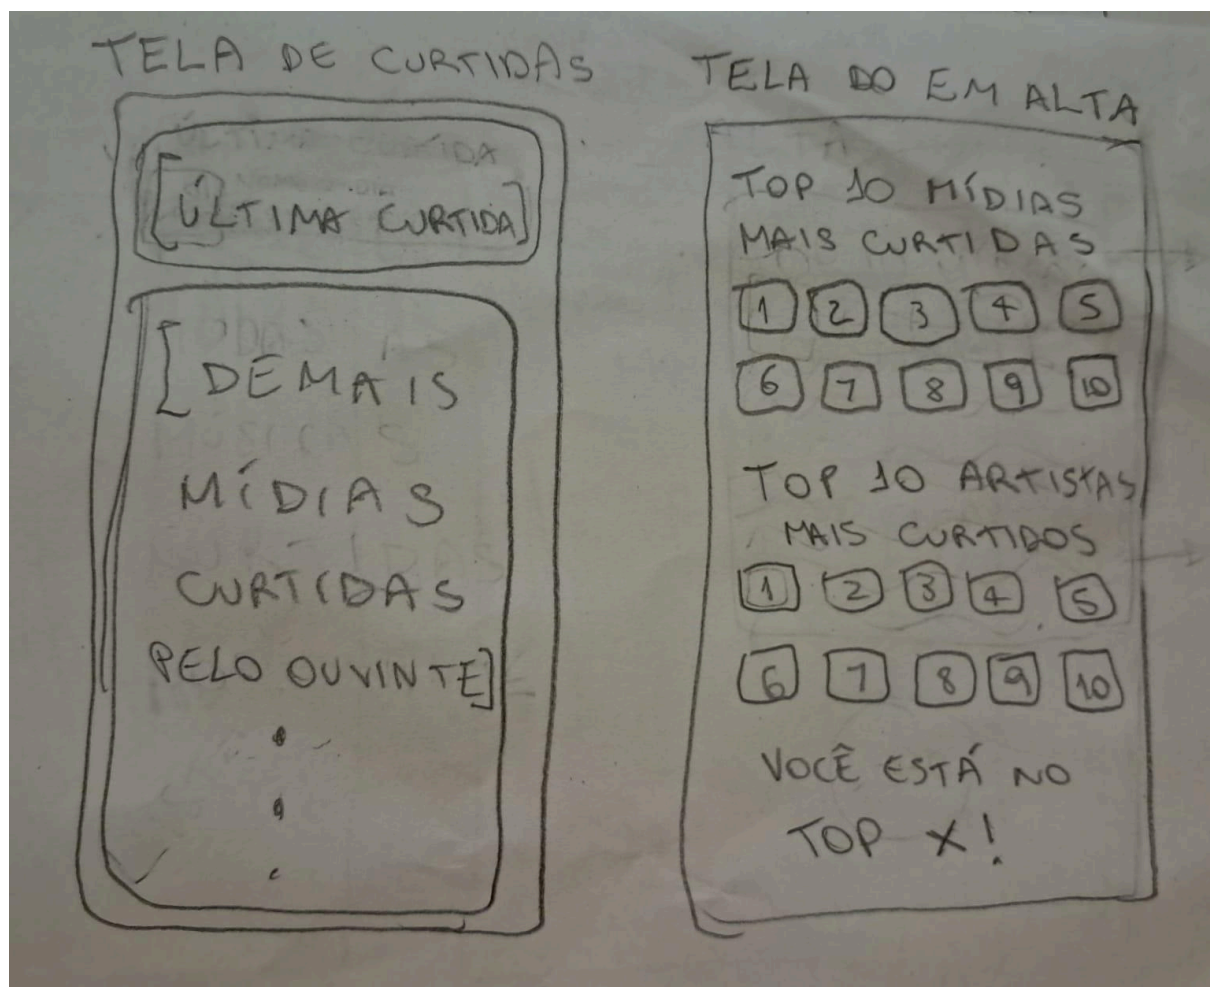 TELA DE CURTIDAS
[ÚLTIMA CURTIDA]
[DEMAIS
MÍDIAS
CURTIDAS
PELO OUVINTE]
TELA DO EM ALTA
TOP 10 MÍDIAS
MAIS CURTIDAS
1 2 3 4 5
6 7 8 9 10
TOP 10 ARTISTAS
MAIS CURTIDOS
1 2 3 4 5
6 7 8 9 10
VOCÊ ESTÁ NO
TOP X!